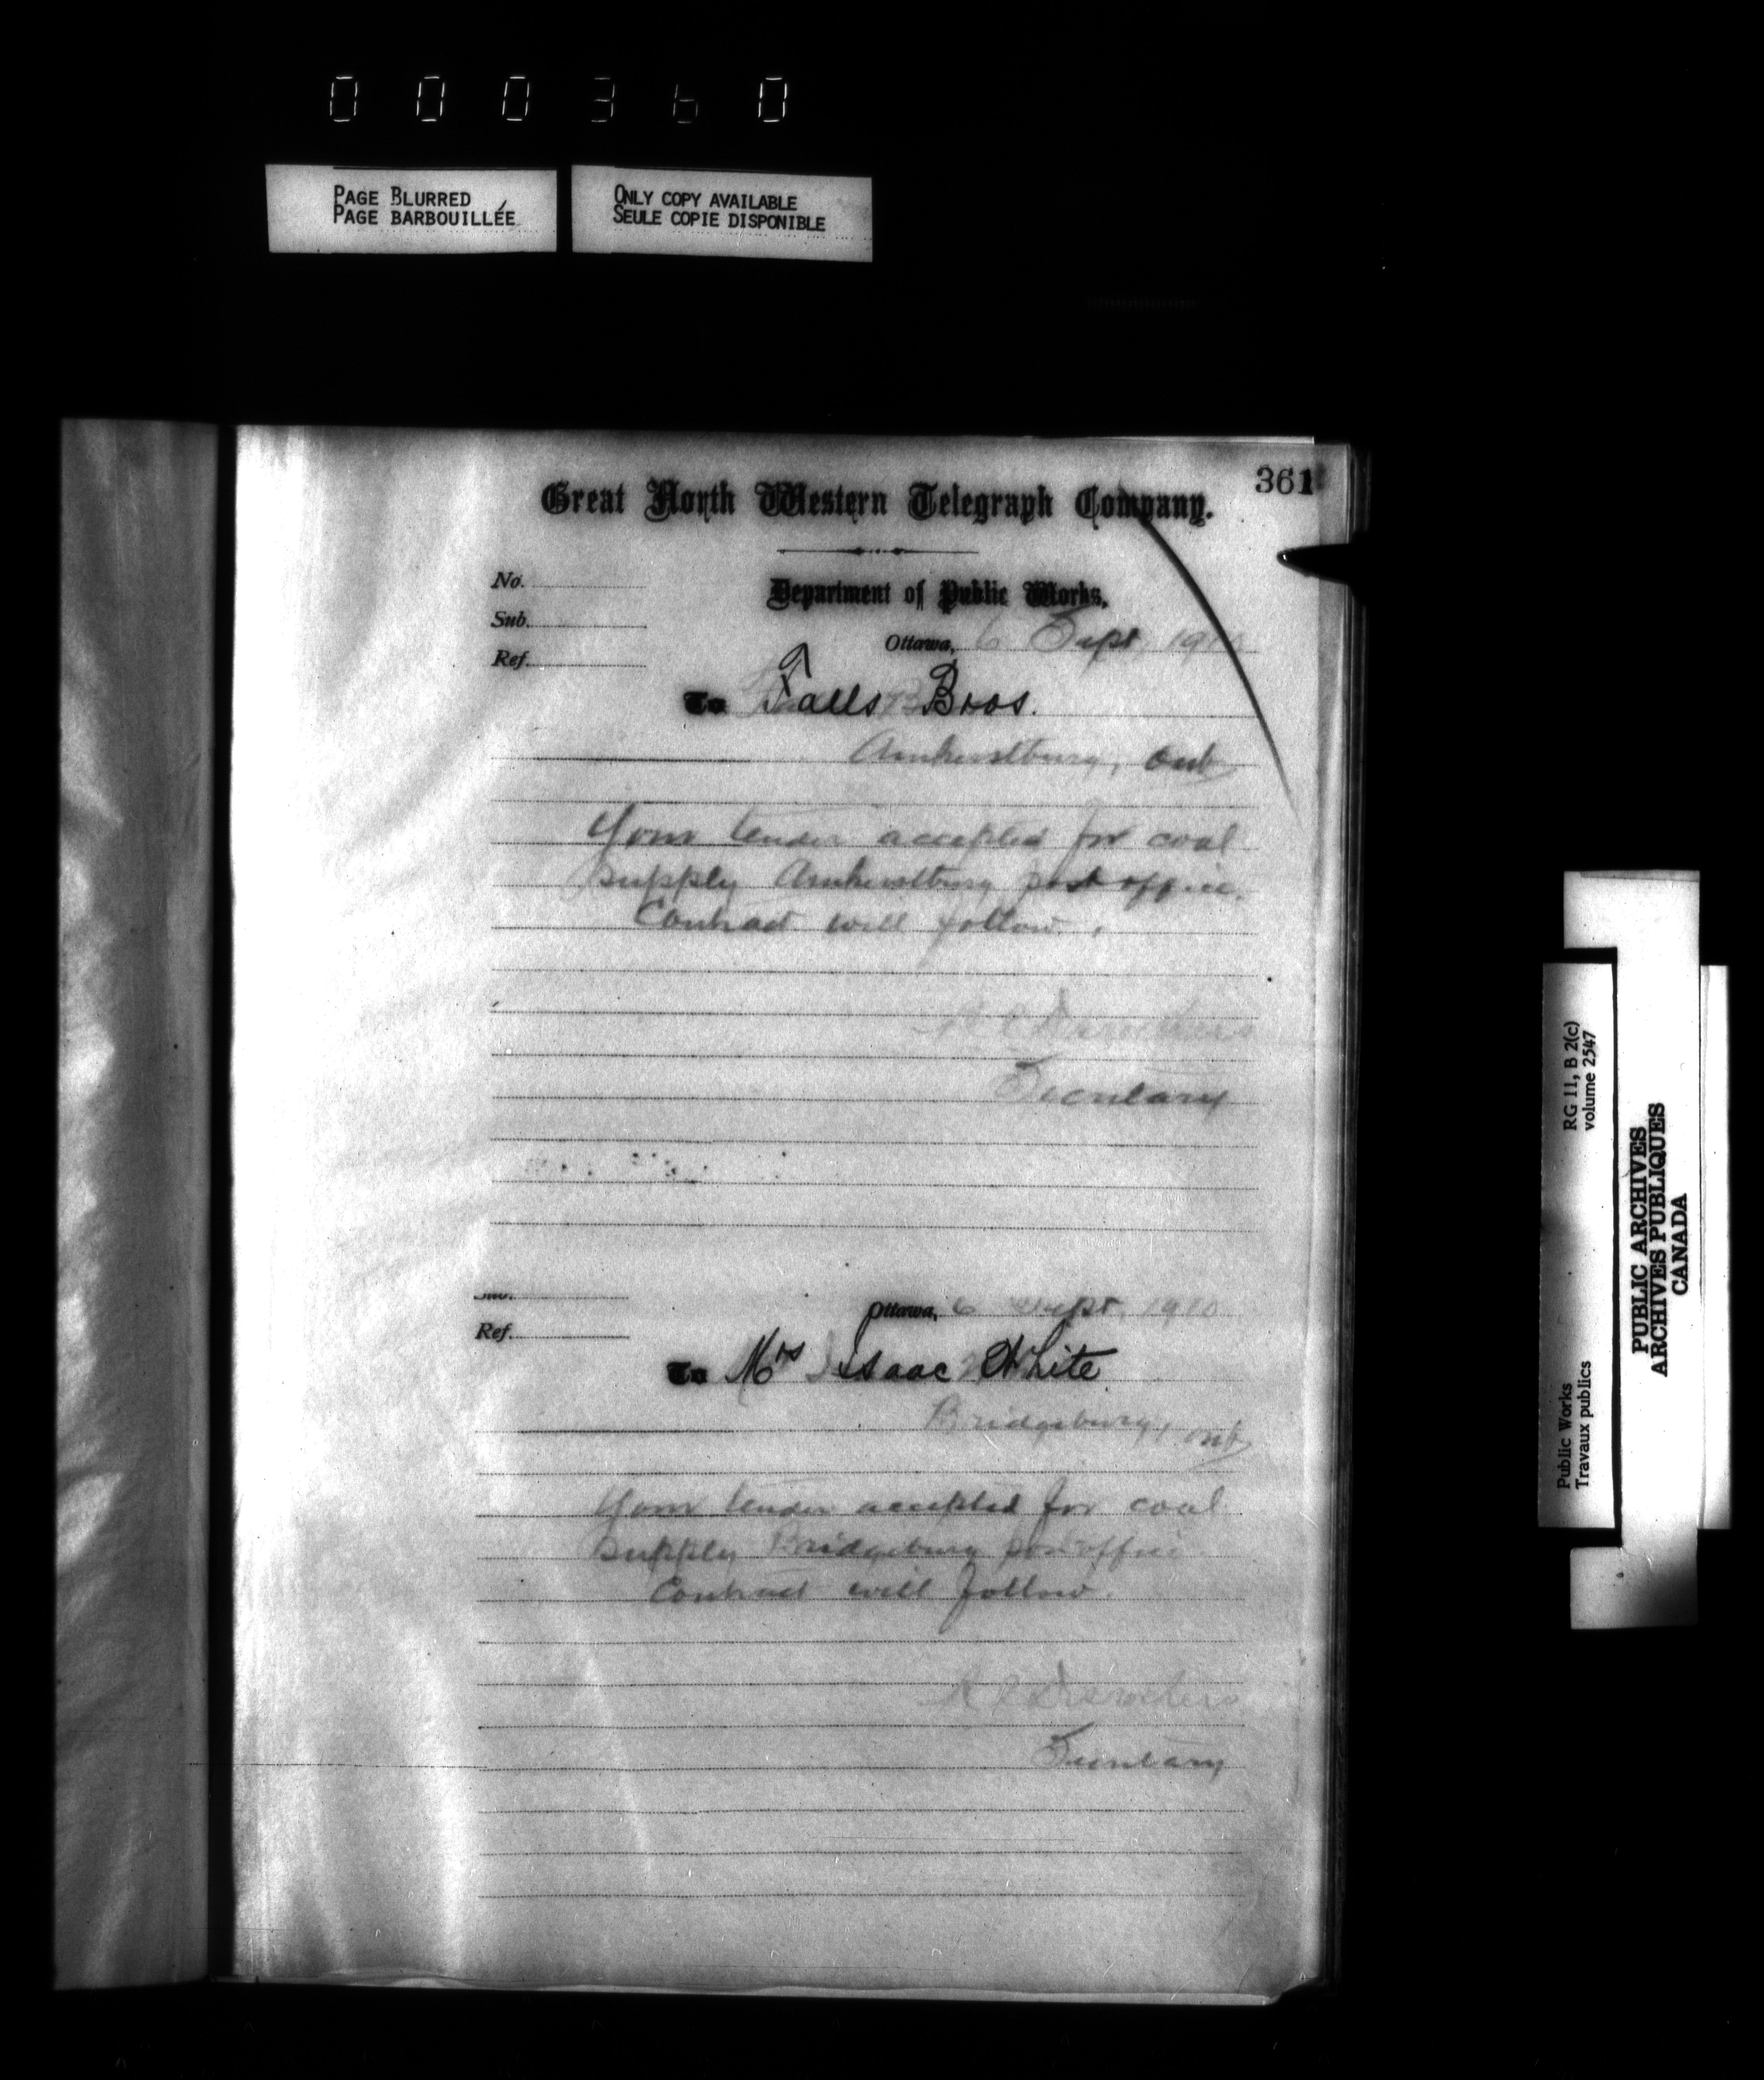 000360
PAGE BLURRED
PAGE BARBOUILLÉE
ONLY COPY AVAILABLE
SEULE COPIE DISPONIBLE
361
Great North Western Telegraph Company.
No.
Department of Public Works,
Sub.
Ottawa, 6 Sept. 1910
Ref.
To Falls Bros.
Amherstburg, Ont
Your tender accepted for coal
supply Amherstburg post office.
Contract will follow.
Secretary
Ottawa, 6 Sept. 1910
Ref.
To Mrs Isaac White
Bridgeburg, Ont
Your tender accepted for coal
supply Bridgeburg post office
Contract will follow.
Secretary
RG 11, B 2(c)
volume 2547
Public Works
Travaux publics
PUBLIC ARCHIVES
ARCHIVES PUBLIQUES
CANADA